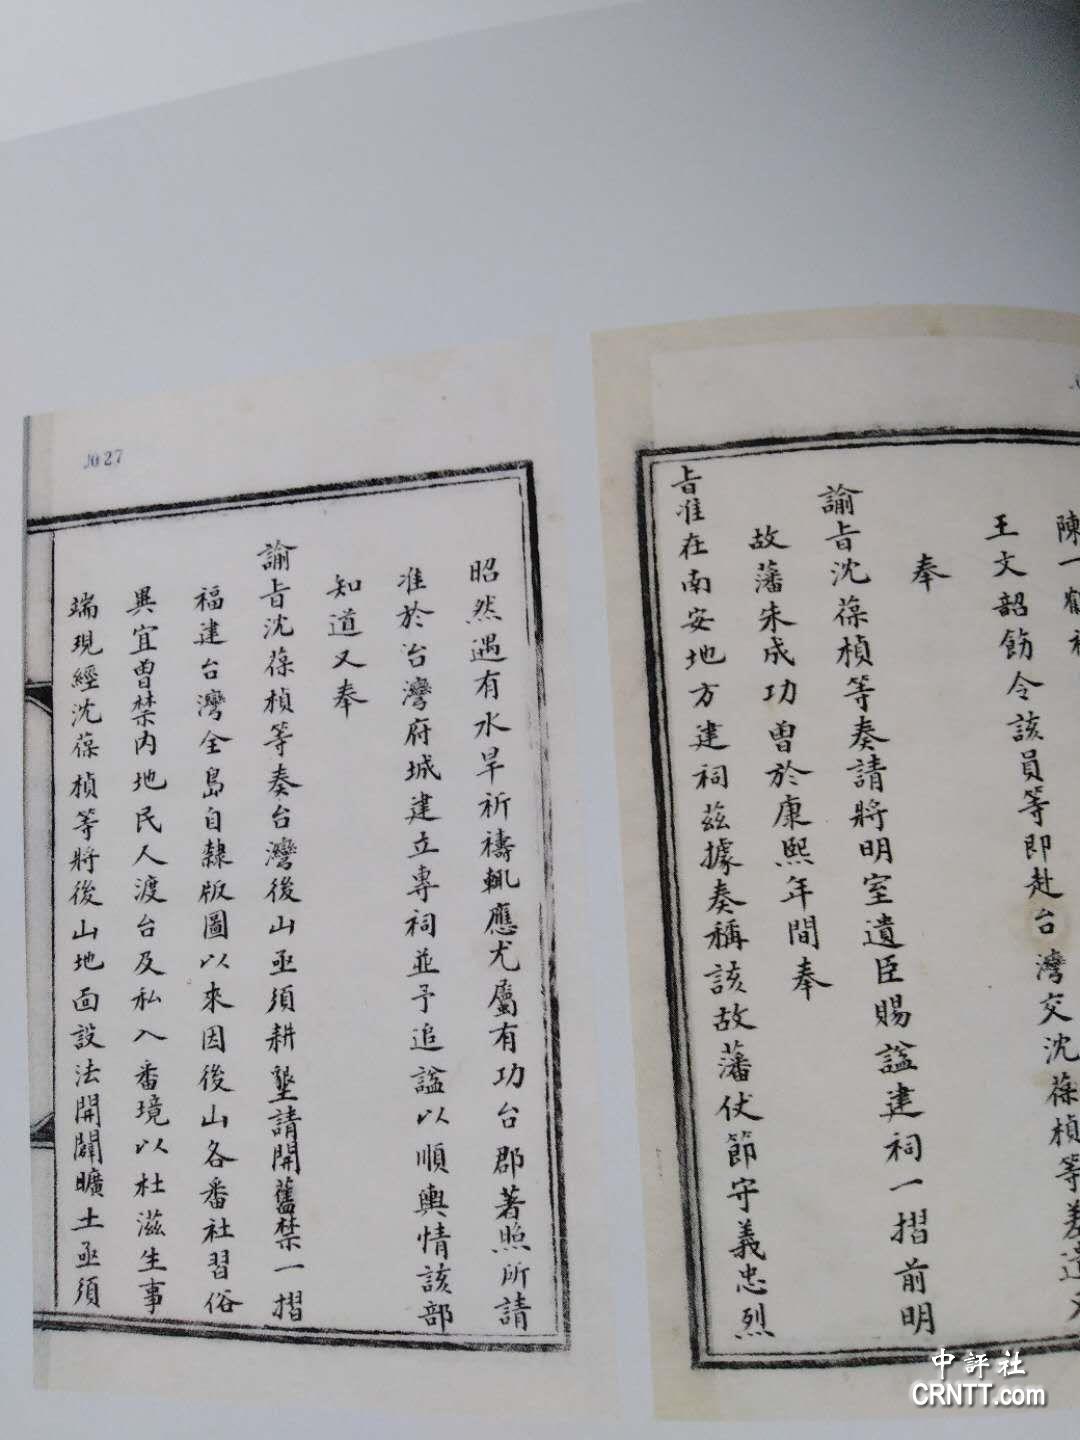 陳一鶴
王文韶飭令該員等即赴台灣交沈葆楨等差遣
奉
諭旨沈葆楨等奏請將明室遺臣賜諡建祠一摺前明
故藩朱成功曾於康熙年間奉
旨准在南安地方建祠茲據奏稱該故藩伏節守義忠烈
昭然遇有水旱祈禱輒應尤屬有功台郡著照所請
准於台灣府城建立專祠並予追諡以順輿情該部
知道又奉
諭旨沈葆楨等奏台灣後山亟須耕墾請開舊禁一摺
福建台灣全島自隸版圖以來因後山各番社習俗
異宜曾禁內地民人渡台及私入番境以杜滋生事
端現經沈葆楨等將後山地面設法開闢曠土亟須
027
中評社
CRNTT.com